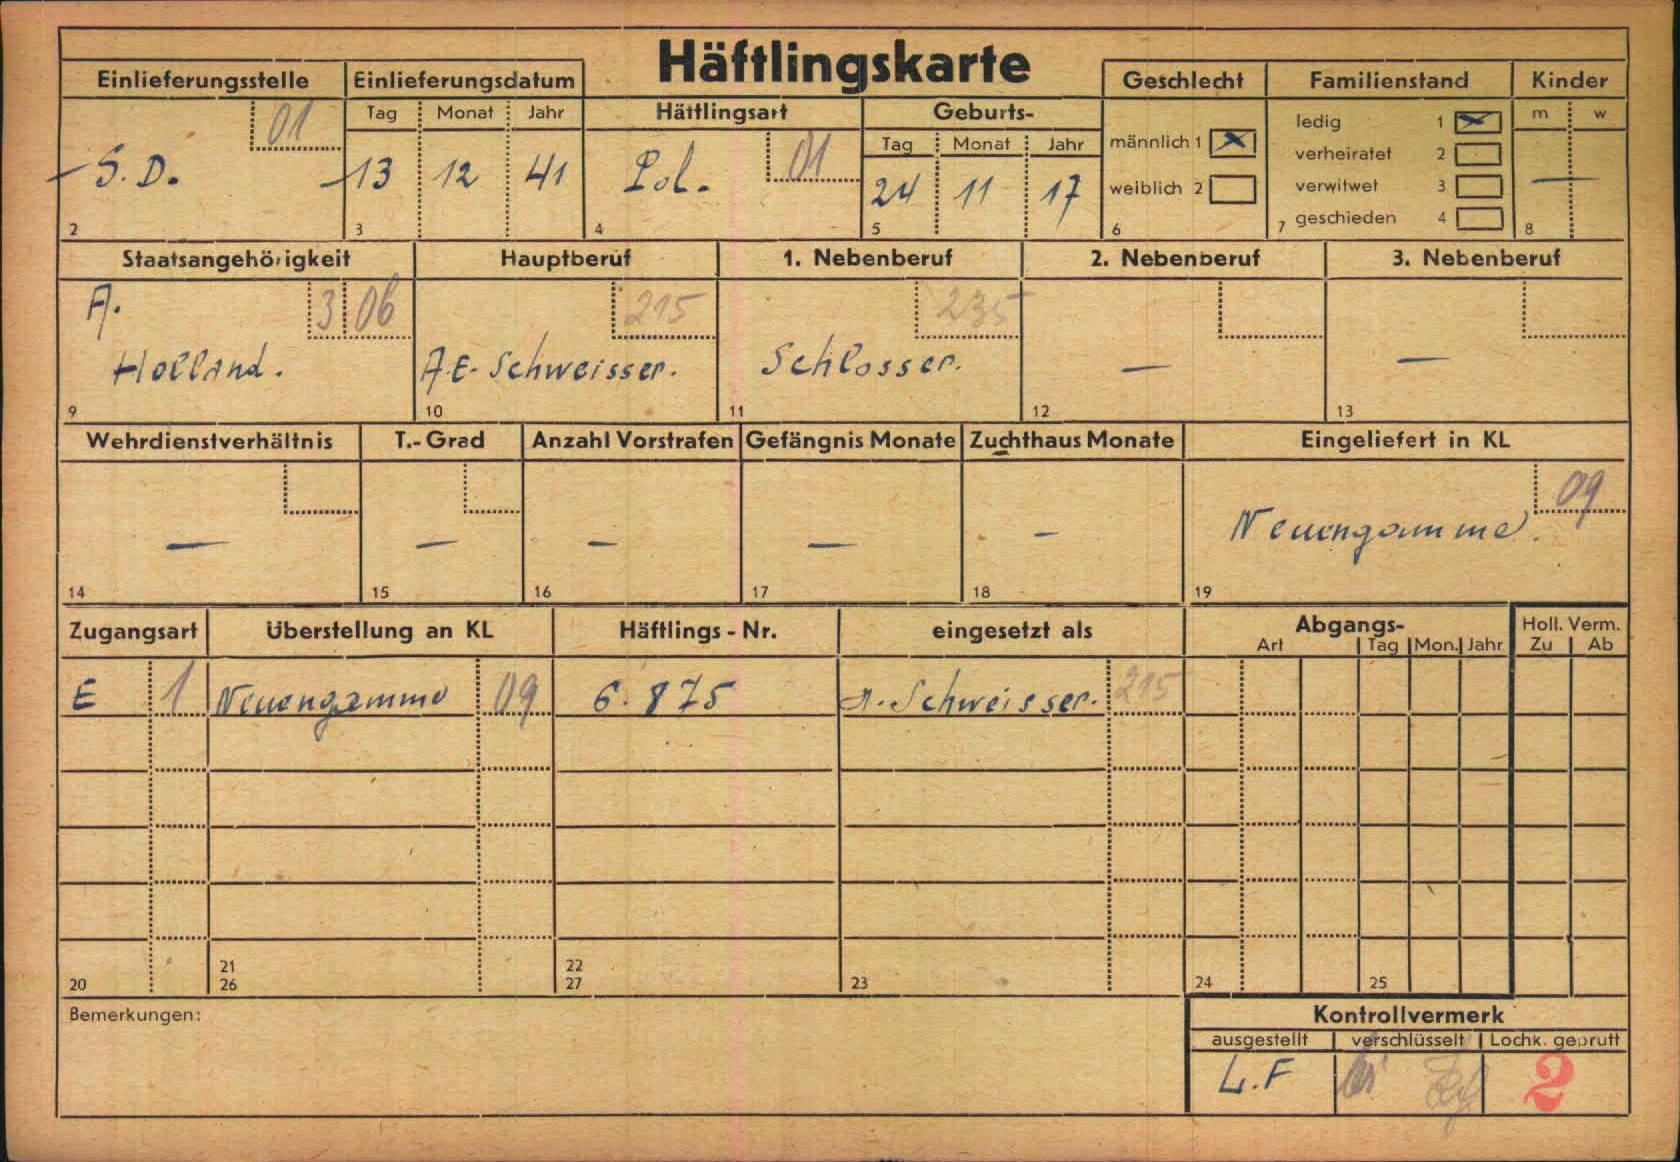 Häftlingskarte
Einlieferungsstelle Einlieferungsdatum Geschlecht Familienstand Kinder
Tag Monat Jahr Häftlingsart Geburts- m w
01 Tag Monat Jahr männlich 1 X ledig 1 X
S.D. 13 12 41 Pol. 01 24 11 17 weiblich 2 verheiratet 2
verwitwet 3 —
geschieden 4
2 3 4 5 6 7 8
Staatsangehörigkeit Hauptberuf 1. Nebenberuf 2. Nebenberuf 3. Nebenberuf
A. 3 06 215 235
Holland. A.E.-Schweisser. Schlosser. — —
9 10 11 12 13
Wehrdienstverhältnis T.-Grad Anzahl Vorstrafen Gefängnis Monate Zuchthaus Monate Eingeliefert in KL
09
— — — — — Neuengamme.
14 15 16 17 18 19
Zugangsart Überstellung an KL Häftlings-Nr. eingesetzt als Abgangs- Holl. Verm.
Art Tag Mon. Jahr Zu Ab
E 1 Neuengamme 09 6.875 A.-Schweisser. 215
21 22
20 26 27 23 24 25
Bemerkungen: Kontrollvermerk
ausgestellt verschlüsselt Lochk. geprüft
L.F 2